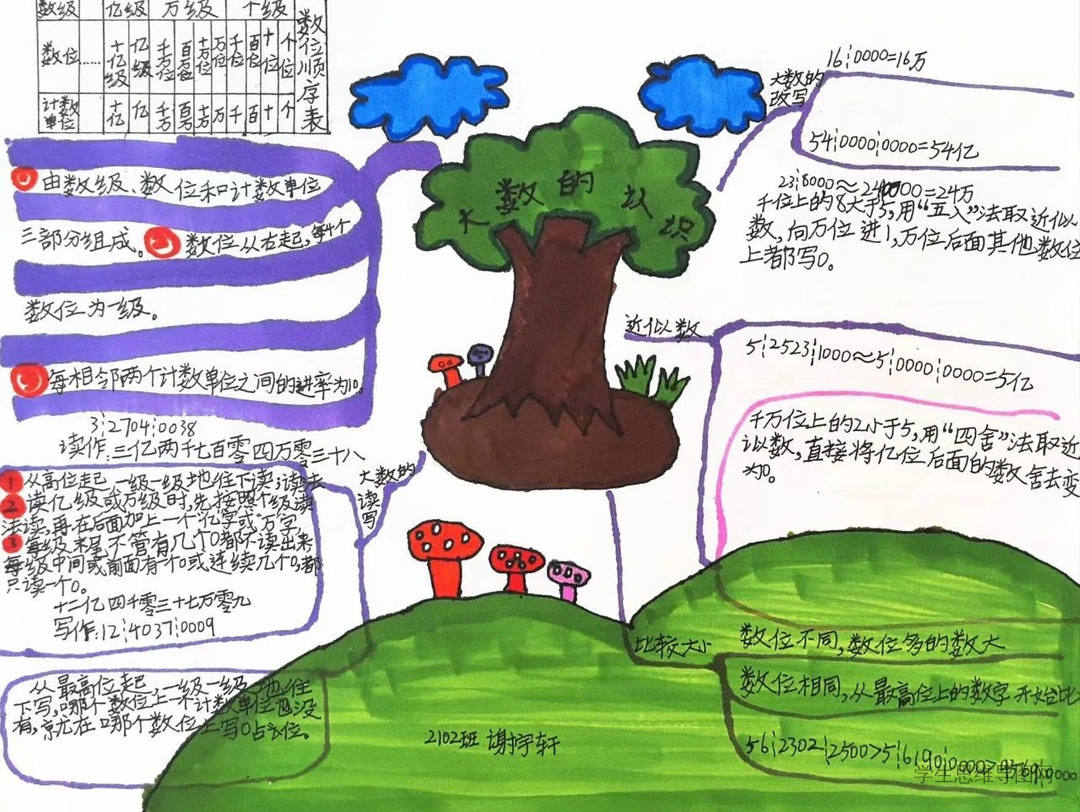 数级 亿级 万级 个级
数位 …… 十亿级 亿级 千万位 百万位 十万位 万位 千位 百位 十位 个位
计数单位 十亿 亿 千万 百万 十万 万 千 百 十 个
数位顺序表
① 由数级、数位和计数单位
三部分组成。② 数位从右起,每4个
数位为一级。
③ 每相邻两个计数单位之间的进率为10。
3¦2704¦0038
读作:三亿两千七百零四万零三十八
大数的读写
1 从高位起一级一级地往下读;读法
2 读亿级或万级时,先按照个级读
法读,再在后面加上一个亿字或万字。
3 每级末尾不管有几个0都不读出来
每级中间或前面有一个0或连续几个0,都
只读一个0。
十二亿四千零三十七万零九
写作:12¦4037¦0009
从最高位起一级一级地往
下写,哪个数位上一个计数单位也没
有,就在哪个数位上写0占位。
大数的认识
大数的改写
16¦0000=16万
54¦0000¦0000=54亿
23¦8000≈240000=24万
千位上的8大于5,用“五入”法取近似
数,向万位进1,万位后面其他数位
上都写0。
近似数
5¦2523¦1000≈5¦0000¦0000=5亿
千万位上的2小于5,用“四舍”法取近
似数,直接将亿位后面的数舍去变
为0。
比较大小
数位不同,数位多的数大
数位相同,从最高位上的数字开始比
56¦2302¦2500>5¦6190¦0000>
2102班 谢宇轩
学生思维导图网